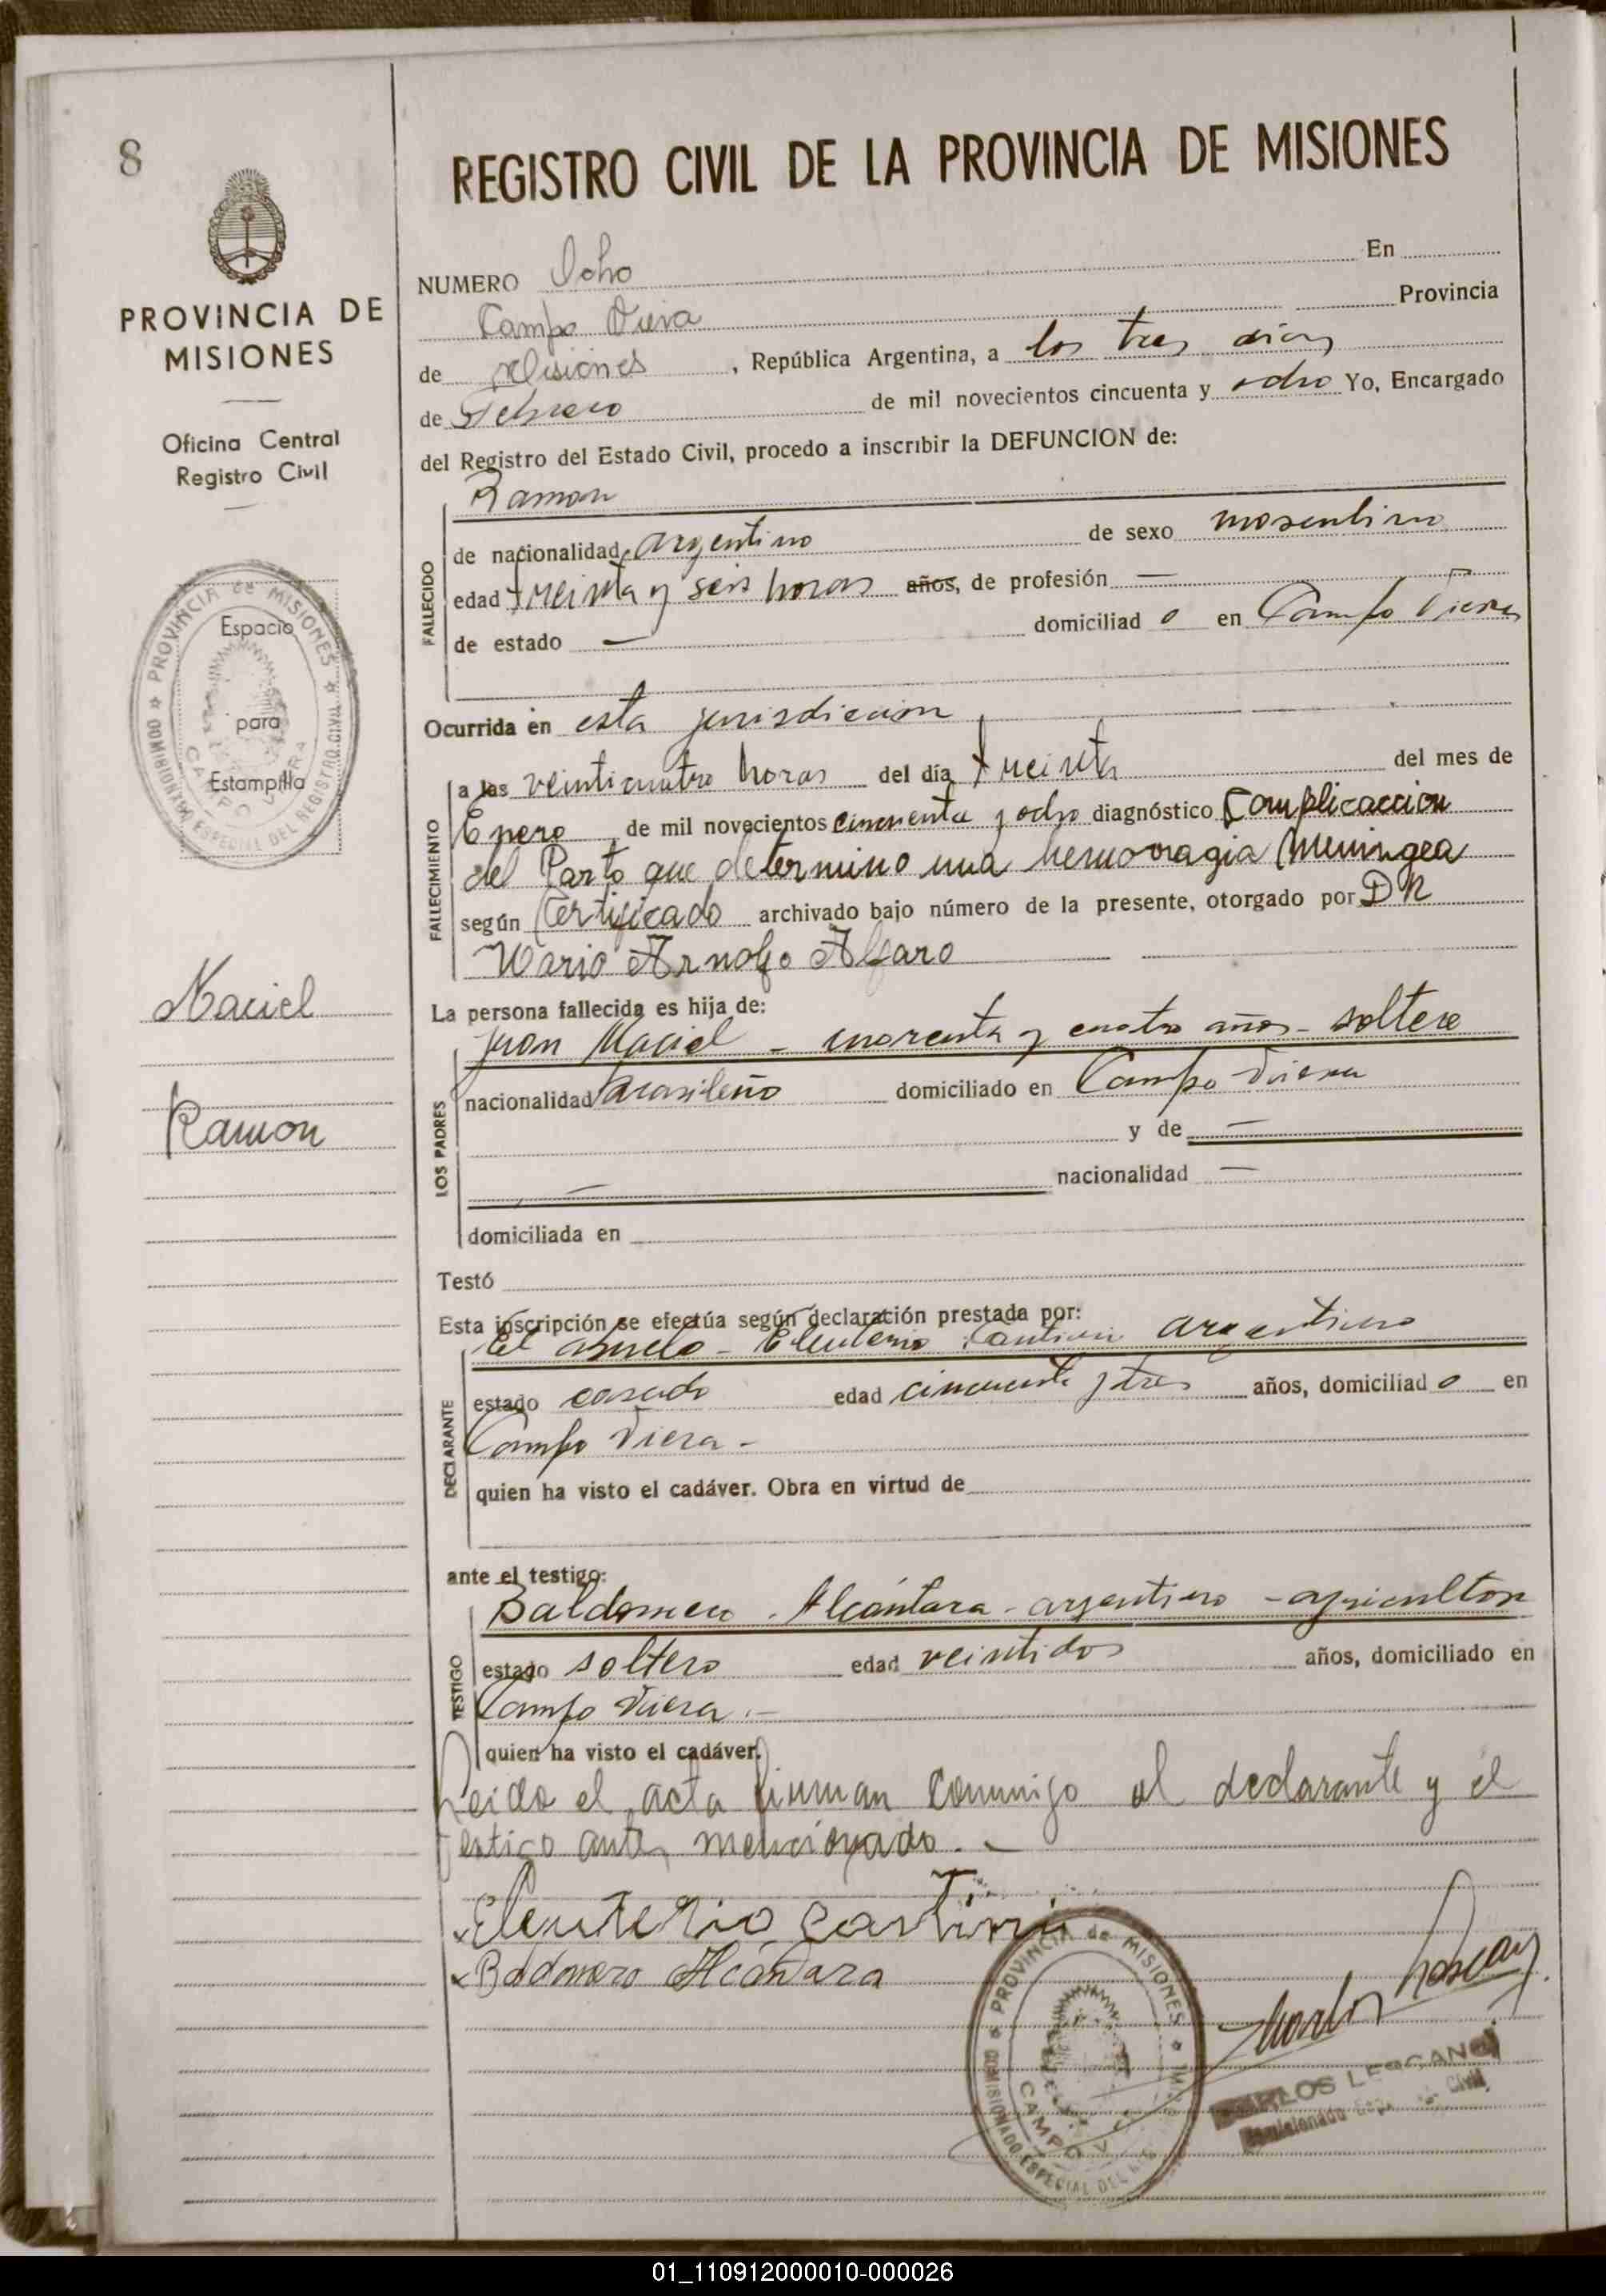 8
PROVINCIA DE
MISIONES
Oficina Central
Registro Civil
PROVINCIA de MISIONES
COMISIONADO ESPECIAL DEL REGISTRO CIVIL
CAMPO VIERA
Espacio
para
Estampilla
Maciel
Ramon
REGISTRO CIVIL DE LA PROVINCIA DE MISIONES
NUMERO Ocho En
Campo Viera Provincia
de Misiones, República Argentina, a los tres dias
de Febrero de mil novecientos cincuenta y ocho Yo, Encargado
del Registro del Estado Civil, procedo a inscribir la DEFUNCION de:
Ramon
FALLECIDO
de nacionalidad argentino de sexo masculino
edad treinta y seis horas años, de profesión —
de estado — domiciliad o en Campo Viera
Ocurrida en esta jurisdiccion
FALLECIMIENTO
a las veinticuatro horas del día treinta del mes de
Enero de mil novecientos cincuenta y ocho diagnóstico Complicaccion
del Parto que determino una hemorragia Meningea
según Certificado archivado bajo número de la presente, otorgado por DR
Mario Arnolfo Alfaro
La persona fallecida es hija de:
LOS PADRES
Juan Maciel - cuarenta y cuatro años - soltero
nacionalidad brasileño domiciliado en Campo Viera
y de —
— nacionalidad —
domiciliada en
Testó
Esta inscripción se efectúa según declaración prestada por:
DECLARANTE
El abuelo - Eleuterio argentino
estado casado edad cincuenta y tres años, domiciliad o en
Campo Viera -
quien ha visto el cadáver. Obra en virtud de
ante el testigo:
TESTIGO
Baldomero Alcántara - argentino - agricultor
estado soltero edad veintidos años, domiciliado en
Campo Viera .-
quien ha visto el cadáver.
Leida el acta firman conmigo el declarante y el
testigo antes mencionado. -
Eleuterio
Badomero Alcantara
PROVINCIA de MISIONES
COMISIONADO ESPECIAL DEL
CAMPO V
Carlos Lescano
CARLOS LESCANO
Comisionado Civil
01_110912000010-000026